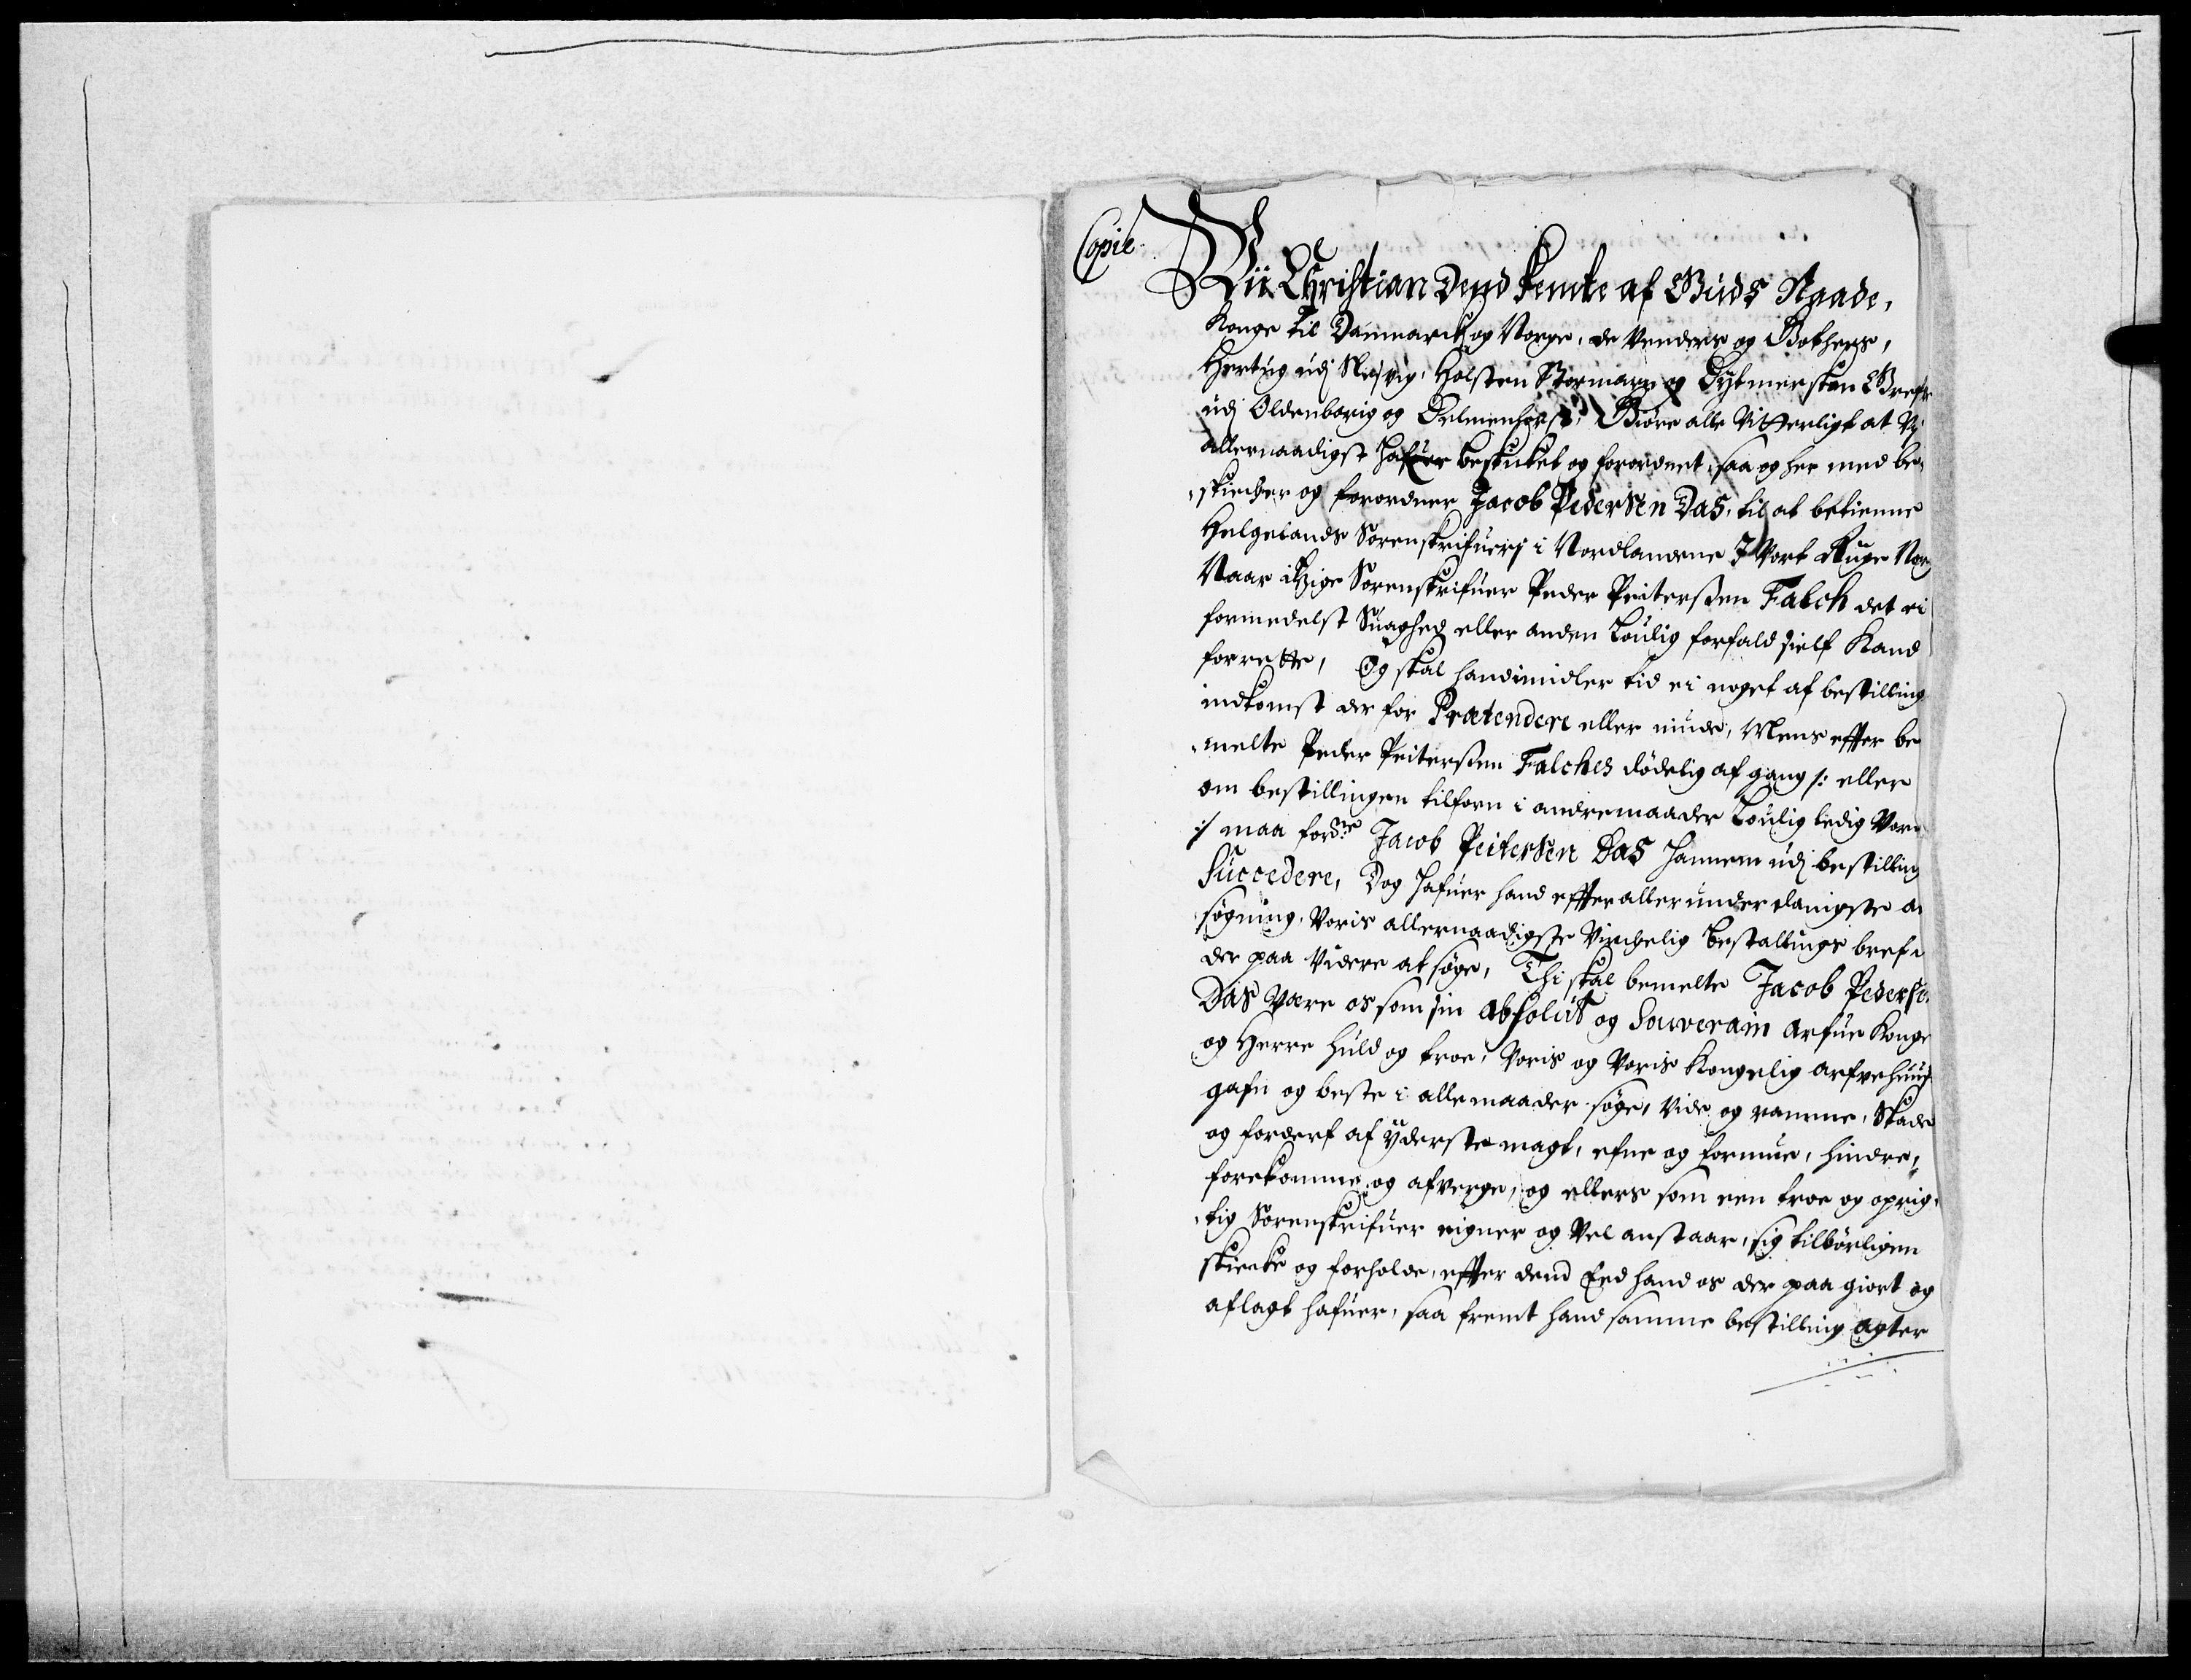 Copie
Wii Christian Dend Femte af Guds Naade,
Konge til Danmarck og Norge, de Venders og Gothers,
Hertug udj Slesvig, Holsten Stormarn og Dytmersken Grefve
udj Oldenborig og Delmenhorst, Giøre alle Vitterligt at Vj
allernaadigst hafuer beskicket og forordnet, saa og her med be-
skicker og forordner Jacob Pedersen Das, til at betienne
Helgelands Sorenskrifuerj i Nordlandene J Vort Riige Nor
Naar itzige Sorenskrifuer Peder Peitersen Falch det ei
formedelst Suaghed eller anden Loulig forfald sielf Kand
forrette, Og skal hand imidler tid ei noget af bestilling
indkomst der for Prætendere eller niude, Mens effter be
melte Peder Peitersen Falches dødelig af gang /: eller
om bestillingen tilforn i andre maader Loulig ledig Vore
:/ maa fordne Jacob Peitersen Das hannem udj bestilling
Succedere, Dog hafuer hand effter allerunderdanigste an
søgning, Voris allernaadigste Virchelig Bestallings bref
der paa Videre at søge, Thi skal bemelte Jacob Pederse
Das Være os som sin absolut og Souverain Arfue Konge
og Herre huld og troe, Voris og Voris Kongelig arfvehuus
gafn og beste i alle maader søge, Vide og ramme, Skade
og forderf af yderste magt, efne og formue, hindre,
forekomme og afverge, og ellers som een troe og oprig-
tig Sorenskrifuer eigner og Vel anstaar, sig tilbørligen
skicke og forholde, effter dend Eed hand os der paa giort og
aflagt hafuer, saa fremt hand samme bestilling agter